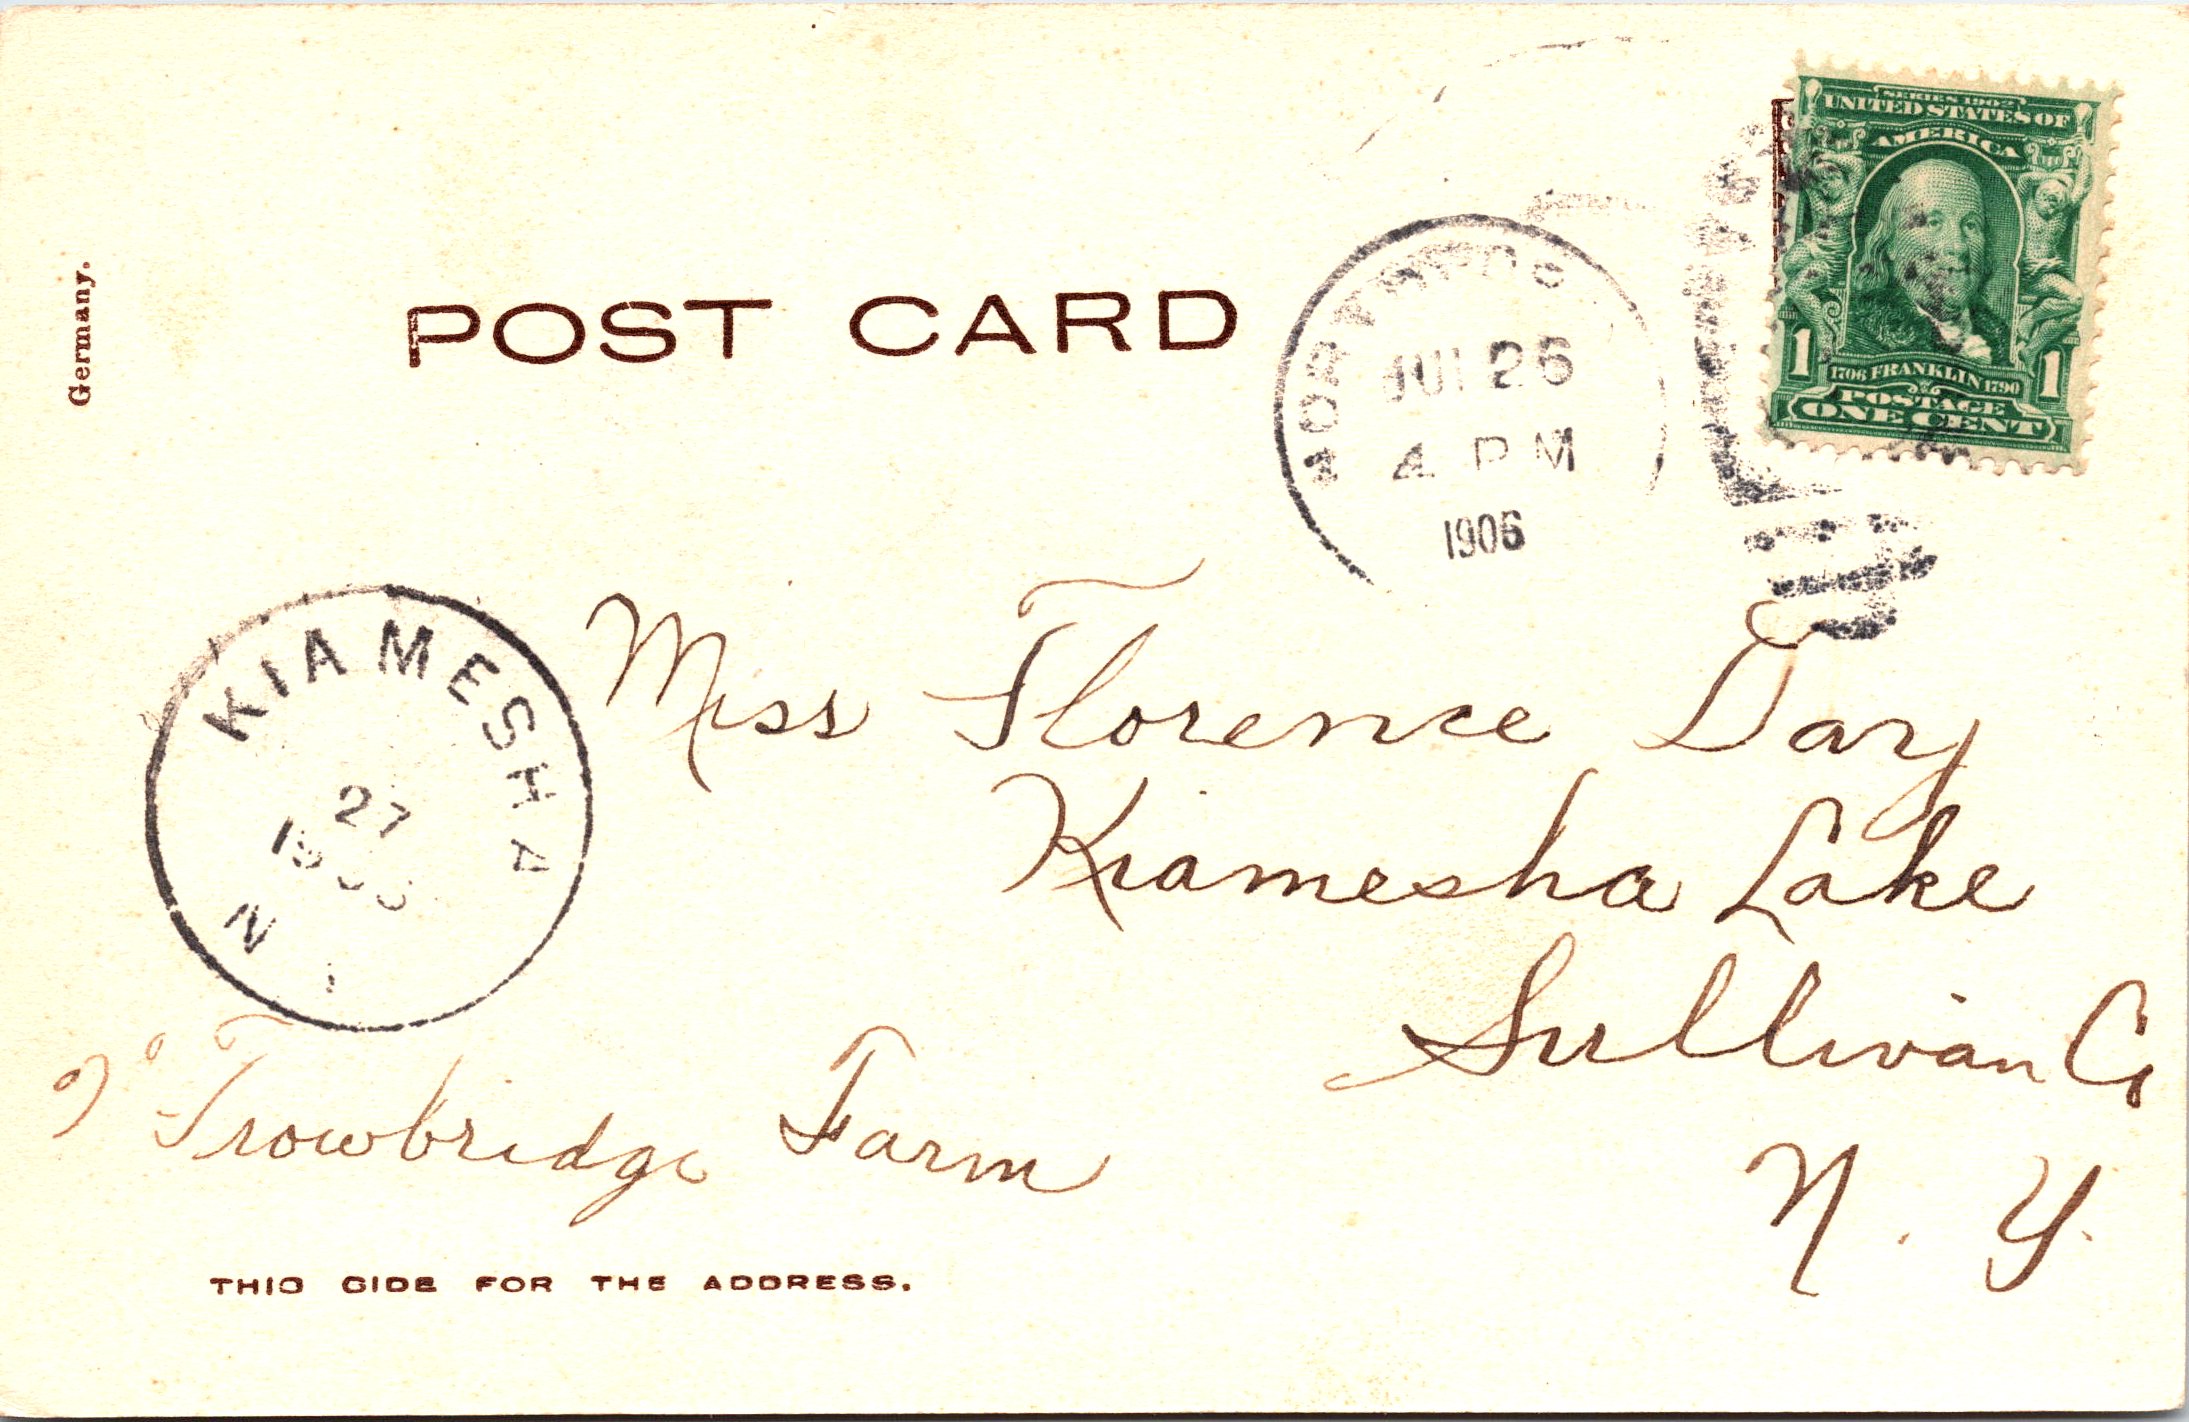 Germany.
POST CARD
JUL 26
4 PM
1906
SERIES 1902
UNITED STATES OF
AMERICA
1706 FRANKLIN 1790
1 1
POSTAGE
ONE CENT
KIAMESHA
27
N
Miss Florence Day
Kiamesha Lake
Sullivan Co
N. Y.
Trowbridge Farm
THIS SIDE FOR THE ADDRESS.